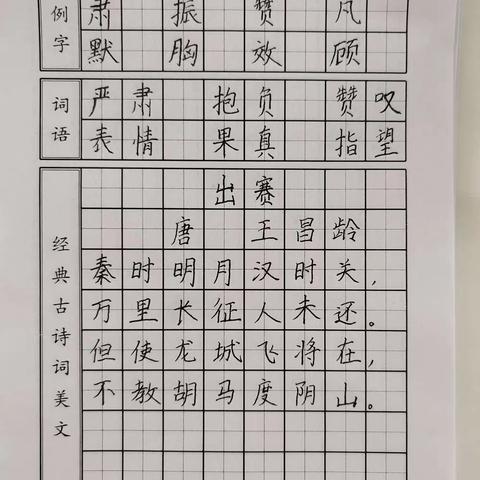 例字
肃 振 赞 凡
默 胸 效 顾
词语
严肃 抱负 赞叹
表情 果真 指望
经典古诗词美文
出赛
唐 王昌龄
秦时明月汉时关，
万里长征人未还。
但使龙城飞将在，
不教胡马度阴山。